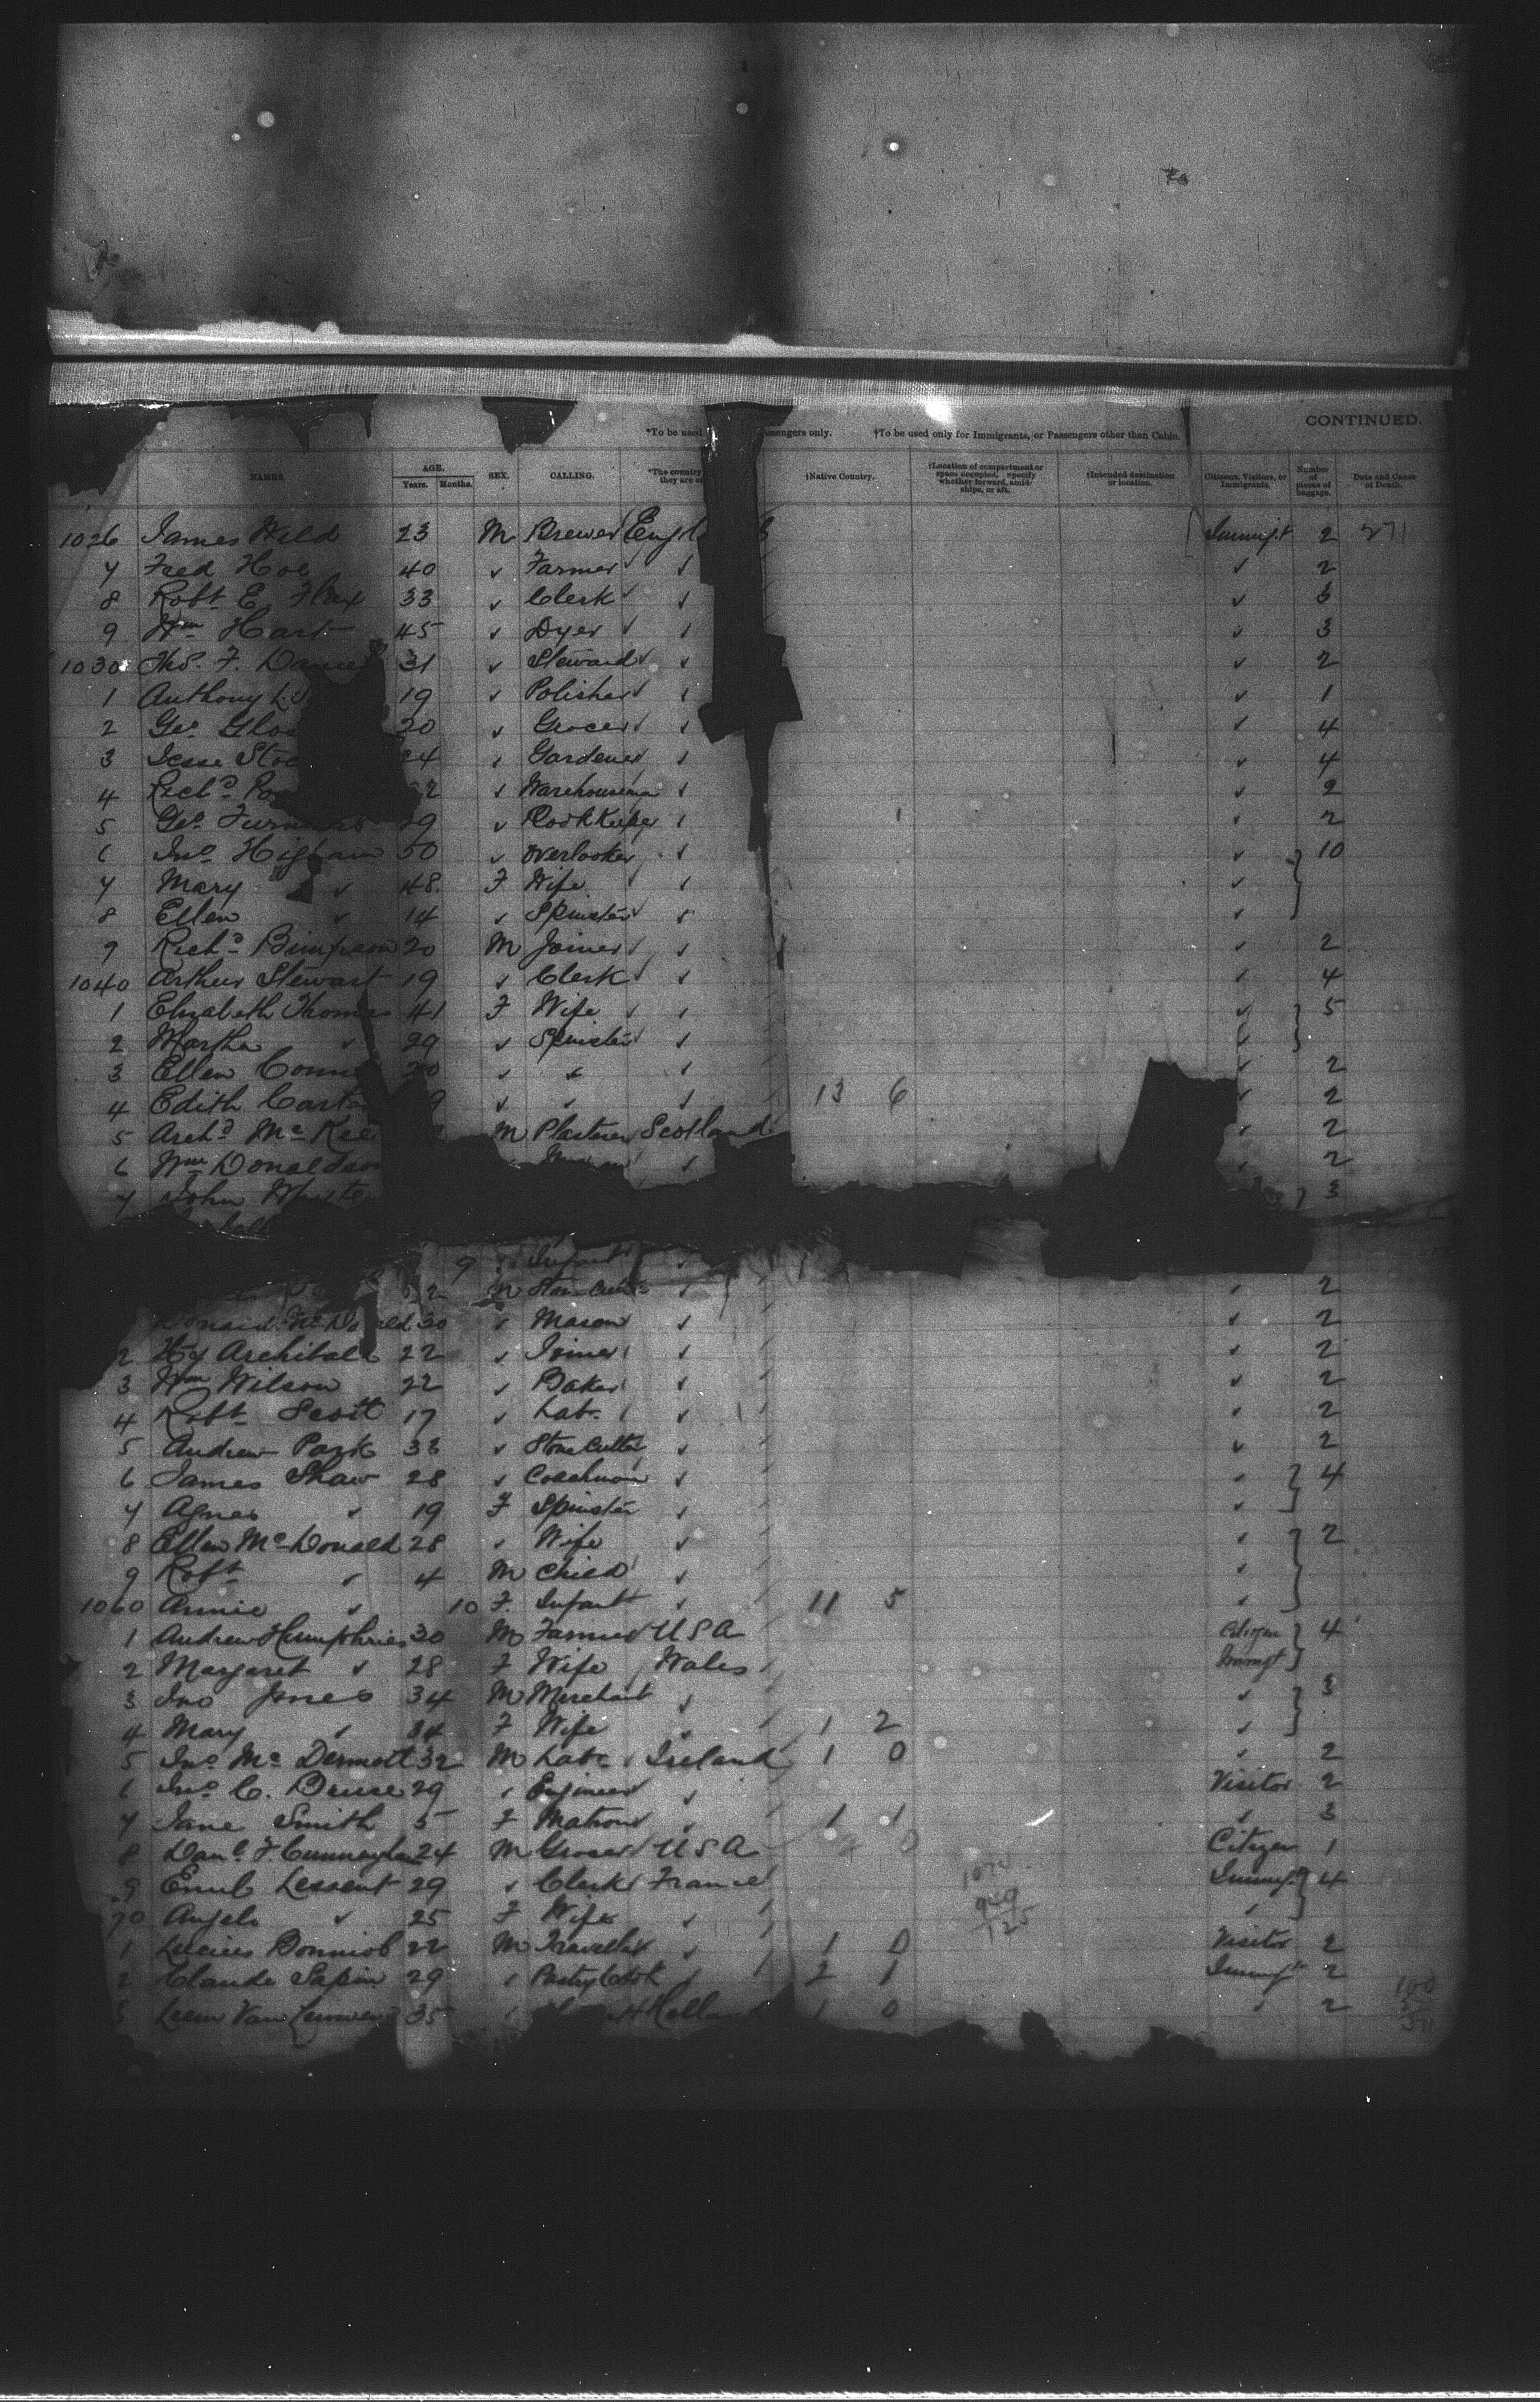 CONTINUED.
*To be used sengers only. †To be used only for Immigrants, or Passengers other than Cabin.
NAMES. AGE. Years. Months. SEX. CALLING. *The country they are of †Native Country. †Location of compartment or space occupied, specify whether forward, amidships, or aft. †Intended destination or location. Citizens, Visitors, or Immigrants. Number of pieces of baggage. Date and Cause of Death.
1026 James Wild 23 M Brewer Engl Immigt 2 271
7 Fred Hoe 40 " Farmer " " 2
8 Robt E. 33 " Clerk " " 3
9 Wm Hart 45 " Dyer " " 3
1030 Thos. F. Danie 31 " Steward " " 2
1 Anthony L 19 " Polisher " " 1
2 Geo 20 " Grocer " " 4
3 Jesse Sto 24 " Gardener " " 4
4 Richd 2 " Warehouseman " " 2
5 Geo. 9 " Book Keeper " " 2
6 Jno Higham 50 " Overlooker " " 10
7 Mary " 48 F Wife " "
8 Ellen " 14 " Spinster " "
9 Richd Bimpson 20 M Joiner " " 2
1040 Arthur Stewart 19 " Clerk " " 4
1 Elizabeth Thomas 41 F Wife " " 5
2 Martha " 29 " Spinster " "
3 Ellen Conn 20 " " " " 2
4 Edith Cart 9 " " " 13 6 " 2
5 Archd McKee M Plasterer Scotland " 2
6 Wm Donaldson " " 2
7 John White 3
9 " Infant "
2 M Stone Cutter " " 2
Donald McDonald 30 " Mason " " 2
2 Hy Archibald 22 " Joiner " " 2
3 Wm Wilson 22 " Baker " " 2
4 Robt Scott 17 " Labr " " 2
5 Andrew Park 33 " Stone Cutter " " 2
6 James Shaw 28 " Coachman " " 4
7 Agnes " 19 F Spinster " "
8 Ellen McDonald 28 " Wife " " 2
9 Robt " 4 M Child " "
1060 Annie " 10 F Infant " 11 5 "
1 Andrew Humphries 30 M Farmer USA Citizen 4
2 Margaret " 28 F Wife Wales Immgt
3 Jno Jones 34 M Merchant " " 3
4 Mary " 34 F Wife " 1 2 "
5 Jno McDermott 32 M Labr Ireland 1 0 " 2
6 Jno C. Bruse 29 " Engineer " Visitor 2
7 Jane Smith 5 F Matron " 1 1 " 3
8 Danl F. Cunningham 24 M Grocer USA 0 Citizen 1
9 Emile Lessent 29 " Clerk France Immgt 4
70 Angele " 25 F Wife " "
1 Bonniol 22 M Traveller " 1 0 Visitor 2
2 Claude Sapin 29 " Pastry Cook " 2 1 Immgt 2
Leen Van 35 " Holla 1 0 " 2